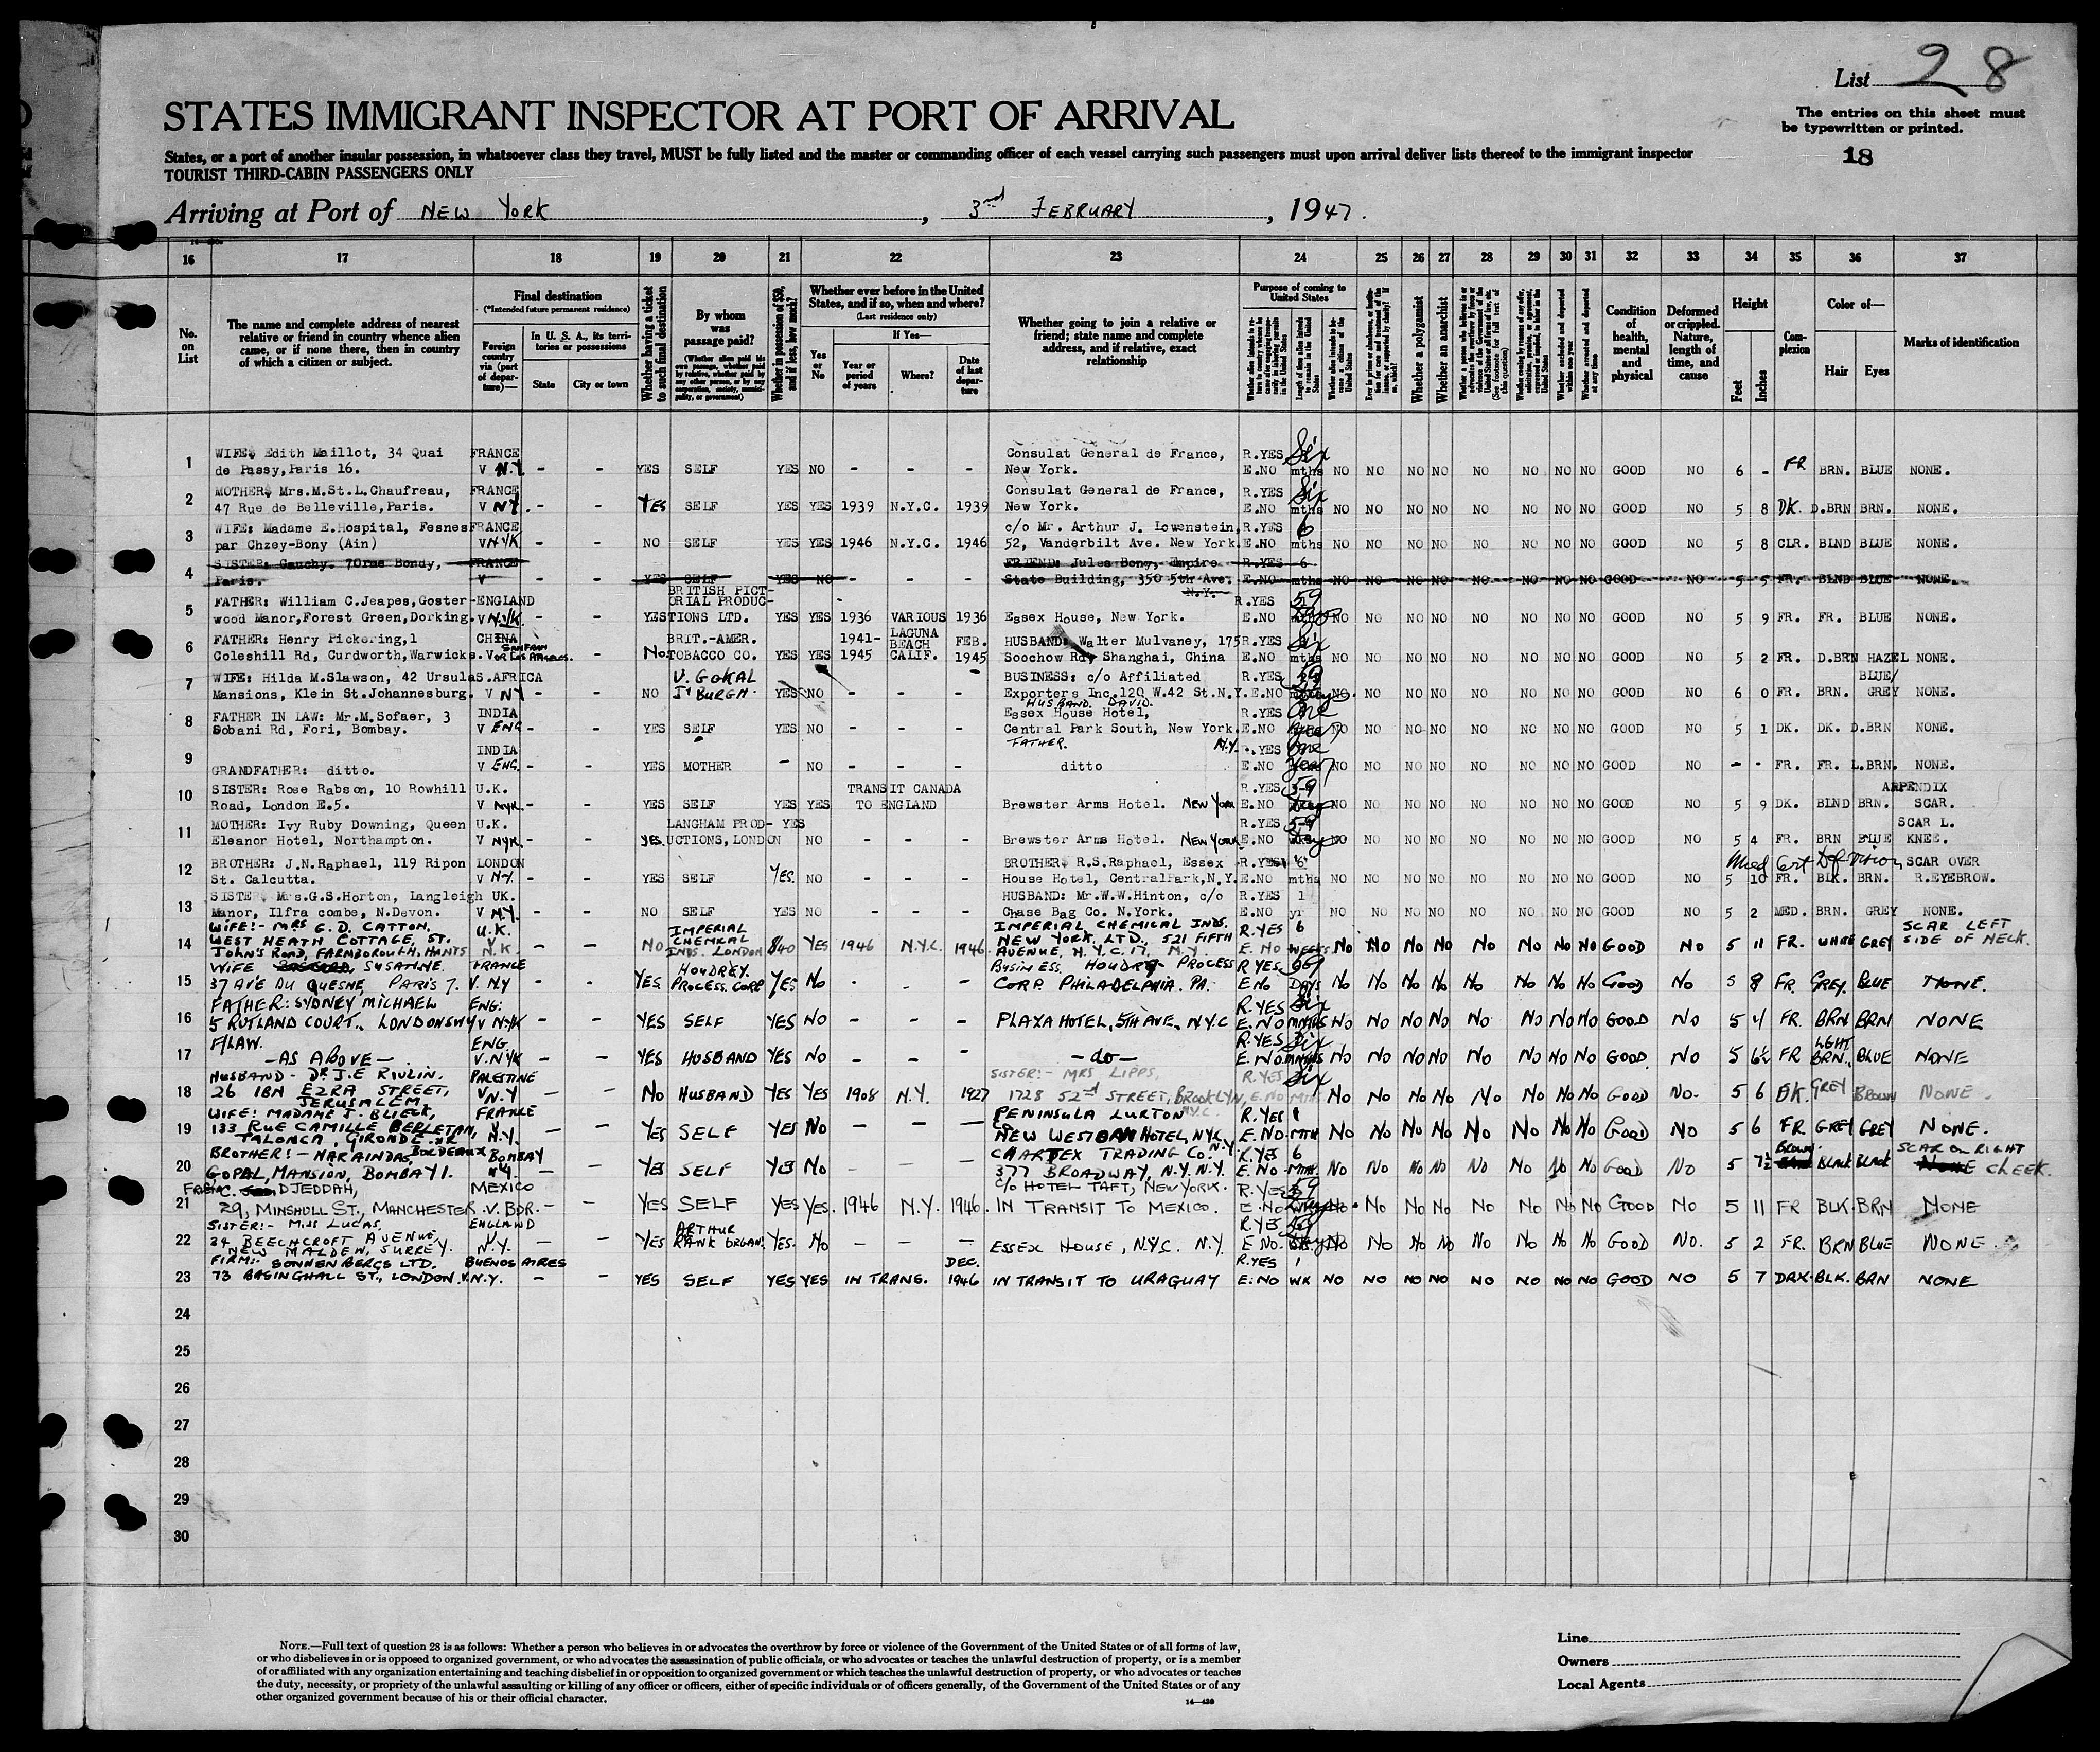 List 28
STATES IMMIGRANT INSPECTOR AT PORT OF ARRIVAL
The entries on this sheet must
be typewritten or printed.
States, or a port of another insular possession, in whatsoever class they travel, MUST be fully listed and the master or commanding officer of each vessel carrying such passengers must upon arrival deliver lists thereof to the immigrant inspector
18
TOURIST THIRD-CABIN PASSENGERS ONLY
Arriving at Port of NEW YORK, 3nd FEBRUARY, 1947.
16 17 18 19 20 21 22 23 24 25 26 27 28 29 30 31 32 33 34 35 36 37
No. on List
The name and complete address of nearest relative or friend in country whence alien came, or if none there, then in country of which a citizen or subject.
Final destination
(*Intended future permanent residence)
Foreign country via (port of departure)—
In U. S. A., its territories or possessions
State
City or town
Whether having a ticket to such final destination
By whom was passage paid?
(Whether alien paid his own passage, whether paid by relative, whether paid by any other person, or by any corporation, society, municipality, or government)
Whether in possession of $50, and if less, how much?
Whether ever before in the United States, and if so, when and where?
(Last residence only)
Yes or No
If Yes—
Year or period of years
Where?
Date of last departure
Whether going to join a relative or friend; state name and complete address, and if relative, exact relationship
Purpose of coming to United States
Length of time alien intends to remain in the United States
Whether a polygamist
Whether an anarchist
Whether arrested and deported at any time
Condition of health, mental and physical
Deformed or crippled. Nature, length of time, and cause
Height
Feet
Inches
Complexion
Color of—
Hair
Eyes
Marks of identification
1 WIFE: Edith Maillot, 34 Quai FRANCE Consulat General de France, R.YES Six
de Passy, Paris 16. V N.Y. - - YES SELF YES NO - - - New York. E.NO mths NO NO NO NO NO NO NO NO GOOD NO 6 - FR BRN. BLUE NONE.
2 MOTHER: Mrs.M.St.L.Chaufreau, FRANCE Consulat General de France, R.YES Six
47 Rue de Belleville, Paris. V NY. - - YES SELF YES YES 1939 N.Y.C. 1939 New York. E.NO mths NO NO NO NO NO NO NO NO GOOD NO 5 8 DK. D.BRN BRN. NONE.
3 WIFE: Madame E.Hospital, Fesnes FRANCE c/o Mr. Arthur J. Lowenstein, R.YES 6
par Chzey-Bony (Ain) V NYK - - NO SELF YES YES 1946 N.Y.C. 1946 52, Vanderbilt Ave. New York. E.NO mths NO NO NO NO NO NO NO NO GOOD NO 5 8 CLR. BLND BLUE NONE.
4 SISTER: Gauchy. 70rue Bondy, FRANCE FRIEND: Jules Bony, Empire R.YES 6
Paris. V - - YES SELF YES NO - - - State Building, 350 5th Ave. E.NO mths NO NO NO NO NO NO NO NO GOOD NO 5 5 FR. BLND BLUE NONE.
N.Y.
BRITISH PICT-
5 FATHER: William C.Jeapes, Goster- ENGLAND ORIAL PRODUC- R.YES 59
wood Manor, Forest Green, Dorking. V N.YK. - - YES TIONS LTD. YES YES 1936 VARIOUS 1936 Essex House, New York. E.NO NO NO NO NO NO NO NO NO GOOD NO 5 9 FR. FR. BLUE NONE.
6 FATHER: Henry Pickering, 1 CHINA BRIT.-AMER. 1941- LAGUNA BEACH FEB. HUSBAND: Walter Mulvaney, 175 R.YES Six
Coleshill Rd, Curdworth, Warwicks. V SANFRAN OR LOS ANGELES. - No. TOBACCO CO. YES YES 1945 CALIF. 1945 Soochow Rd, Shanghai, China E.NO mths NO NO NO NO NO NO NO NO GOOD NO 5 2 FR. D.BRN HAZEL NONE.
7 WIFE: Hilda M.Slawson, 42 Ursula S.AFRICA V. GOKAL BUSINESS: c/o Affiliated R.YES 59 BLUE/
Mansions, Klein St.Johannesburg. V NY - - NO J'BURGH. YES NO - - - Exporters Inc.120 W.42 St.N.Y. E.NO NO NO NO NO NO NO NO NO GOOD NO 6 0 FR. BRN. GREY NONE.
HUSBAND. DAVID.
8 FATHER IN LAW: Mr.M.Sofaer, 3 INDIA Essex House Hotel, R.YES One
Sobani Rd, Fori, Bombay. V ENG - - YES SELF YES NO - - - Central Park South, New York. E.NO NO NO NO NO NO NO NO NO GOOD NO 5 1 DK. DK. D.BRN NONE.
FATHER. N.Y.
9 INDIA R.YES One
GRANDFATHER: ditto. V ENG. - - YES MOTHER - NO - - - ditto E.NO Year NO NO NO NO NO NO NO NO GOOD NO - - FR. FR. L.BRN. NONE.
10 SISTER: Rose Rabson, 10 Rowhill U.K. TRANSIT CANADA R.YES 59 APPENDIX
Road, London E.5. V NYK. - - YES SELF YES YES TO ENGLAND Brewster Arms Hotel. NEW YORK E.NO NO NO NO NO NO NO NO NO GOOD NO 5 9 DK. BLND BRN. SCAR.
11 MOTHER: Ivy Ruby Downing, Queen U.K. LANGHAM PROD- YES R.YES 59 SCAR L.
Eleanor Hotel, Northampton. V NYK. - - YES. UCTIONS, LONDON NO - - - Brewster Arms Hotel. NEW YORK E.NO NO NO NO NO NO NO NO NO GOOD NO 5 4 FR. BRN BLUE KNEE.
12 BROTHER: J.N.Raphael, 119 Ripon LONDON BROTHER: R.S.Raphael, Essex R.YES 6 Med Cert Def Vision SCAR OVER
St. Calcutta. V N.Y. - - YES SELF YES. NO - - - House Hotel, CentralPark, N.Y. E.NO mths NO NO NO NO NO NO NO NO GOOD NO 5 10 FR. BLK. BRN. R.EYEBROW.
13 SISTER. Mrs.G.S.Horton, Langleigh UK. HUSBAND: Mr.W.W.Hinton, c/o R.YES 1
Manor, Ilfra combe, N.Devon. V N.Y. - - NO SELF YES NO - - - Chase Bag Co. N.York. E.NO yr NO NO NO NO NO NO NO NO GOOD NO 5 2 MED. BRN. GREY NONE.
14 WIFE:- MRS G.D. CATTON, U.K. IMPERIAL IMPERIAL CHEMICAL INDS. R.YES 6 SCAR LEFT
WEST HEATH COTTAGE, ST. V. - - NO CHEMICAL $40 YES 1946 N.Y.C. 1946. NEW YORK. LTD., 521 FIFTH SIDE OF NECK.
JOHN'S ROAD, FARNBOROUGH, HANTS N.K. INDS. LONDON AVENUE, N.Y.C. 17, N.Y. E. NO WEEKS NO NO NO NO NO NO NO NO GOOD NO 5 11 FR. WHITE GREY
15 WIFE SUSANNE. FRANCE HOUDREY. BUSINESS. HOUDRY PROCESS R YES 59
37 AVE DU QUESNE, PARIS 7. V. NY - - YES PROCESS. CORP YES NO - - - CORP. PHILADELPHIA. PA. E NO DAYS NO NO NO NO NO NO NO NO GOOD NO 5 8 FR. GREY. BLUE NONE.
16 FATHER: SYDNEY MICHAEL ENG: R.YES Six
5 RUTLAND COURT., LONDON SW7 V N.YK - - YES SELF YES NO - - - PLAZA HOTEL, 5TH AVE, N.Y.C E. NO MNTHS NO NO NO NO NO NO NO NO GOOD NO 5 4 FR. BRN BRN NONE
17 F/LAW. ENG R.YES Six LGHT
—AS ABOVE— V.NYK - - YES HUSBAND YES NO - - - —do— E. NO MNTHS NO NO NO NO NO NO NO NO GOOD. NO 5 6½ FR BRN. BLUE NONE
18 HUSBAND - DR J.E RIVLIN, PALESTINE SISTER:- MRS LIPPS, R.YES Six
26 IBN EZRA STREET, V.N.Y - - NO HUSBAND YES YES 1908 N.Y. 1927 1728 52nd STREET, BROOKLYN, E.NO MTH NO NO NO NO NO NO NO NO GOOD NO. 5 6 DK. GREY BROWN NONE
JERUSALEM. N.Y.C.
19 WIFE: MADAME J. BLIECK, FRANCE PENINSULA LURTON R.YES 1
133 RUE CAMILLE V. - - YES SELF YES NO - - - Co NEW WESTON HOTEL, NYC. E.NO MTH NO NO NO NO NO NO NO NO GOOD NO 5 6 FR GREY GREY NONE.
TALONCA, GIRONDE. NR BORDEAUX N.Y.
20 BROTHER:- NARAINDAS, BOMBAY CHARTEX TRADING Co. N.Y R.YES 6 BROWN SCAR ON RIGHT
GOPAL MANSION, BOMBAY 1. - - YES SELF YES NO - - - 377 BROADWAY, N.Y. N.Y. E.NO MTH NO NO NO NO NO NO NO NO GOOD NO 5 7½ BLACK BLACK CHEEK.
21 FRIEND C. DJEDDAH, MEXICO C/O HOTEL TAFT, NEW YORK. R.YES 59
29, MINSHULL ST., MANCHESTER. V. BDR. - - YES SELF YES YES. 1946 N.Y. 1946. IN TRANSIT TO MEXICO. E.NO NO. NO NO NO NO NO NO NO GOOD NO 5 11 FR BLK. BRN NONE
22 SISTER:- MISS LUCAS, ENGLAND ARTHUR R.YES 59
34 BEECHCROFT AVENUE, V. - - YES RANK ORGAN. YES. NO - - - ESSEX HOUSE, N.Y.C. N.Y. E NO. NO NO NO NO NO NO NO NO GOOD NO. 5 2 FR. BRN BLUE NONE.
NEW MALDEN, SURREY. N.Y.
23 FIRM:- SONNENBERGS LTD. BUENOS AIRES DEC. R.YES 1
73 BASINGHALL ST., LONDON. V.N.Y. - - YES SELF YES YES IN TRANS. 1946 IN TRANSIT TO URAGUAY E: NO WK NO NO NO NO NO NO NO NO GOOD NO 5 7 DRK. BLK. BRN NONE
24
25
26
27
28
29
30
NOTE.—Full text of question 28 is as follows: Whether a person who believes in or advocates the overthrow by force or violence of the Government of the United States or of all forms of law,
or who disbelieves in or is opposed to organized government, or who advocates the assassination of public officials, or who advocates or teaches the unlawful destruction of property, or is a member
of or affiliated with any organization entertaining and teaching disbelief in or opposition to organized government or which teaches the unlawful destruction of property, or who advocates or teaches
the duty, necessity, or propriety of the unlawful assaulting or killing of any officer or officers, either of specific individuals or of officers generally, of the Government of the United States or of any
other organized government because of his or their official character.
Line
Owners
Local Agents